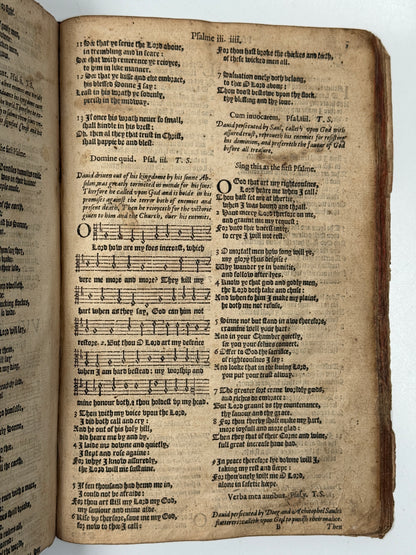 Psalme iii. iiii.
11 See that ye serve the Lord above,
in trembling and in feare:
See that with reverence ye rejoyce,
to him in like manner.
12 See that ye kisse and eke embrace,
his blessed Sonne I say:
Least in his wrath ye sodenly,
perish in the midway.
13 If once his wrath never so small,
shall kindle in his brest:
Oh then al they that trust in Christ,
shall happie be and blest.
Domine quid. Psal. iii. T. S.
David driven out of his kingdome by his sonne Absolon, was greatly tormented in minde for his
Therefore he called upon God and is bolde in his
promises against the terror both of enemies and
present death, Then he rejoyceth for the victorie
given to him and the Church, over his enemies.
O
Lord how are my foes increast, which
vexe me more and more? They kill my
hart when as they say, God can him not
restore. 2. But thou O Lord art my defence
when I am hard bestead: my worship and
mine honour both, & thou holdest up my head.
3 Then with my voice upon the Lord,
I did both call and cry:
And he out of his holy hill,
did heare me by and by.
4 I laide me downe and quietly,
I slept and rose againe:
For why? I know assuredly,
the Lord will me sustaine.
5 If ten thousand had hemd me in,
I could not be afraide:
For thou art still my Lord my God,
my saviour and mine aide.
6 Rise up therefore, save me my God,
for now to thee I call:
For thou hast broke the cheekes and teeth,
of these wicked men all.
7 Salvation onely doth belong,
to thee O Lord above:
Thou dost bestow upon thy flock,
thy blessing and thy love.
Cum invocarem. Psal. iiii. T. S.
David persecuted by Saul, calleth upon God with
assured trust, reproveth his enemies for resisting
his dominion, and preferreth the favour of God
before all treasure.
Sing this as the first Psalme.
O God that art my righteousnes,
Lord heare me when I call:
Thou hast set me at libertie,
when I was bound and thrall.
2 Have mercy Lord therefore on me,
and graunt me my request:
For unto thee uncessantly,
to cry I will not rest.
3 O mortall men how long will ye,
my glory thus despise?
Why wander ye in vanitie,
and follow after lies?
4 Know ye that good and godly men,
the Lord doth take and chuse:
And when to him I make my plaint,
he doth me not refuse.
5 Sinne not but stand in awe therefore,
examine well your hart:
And in your Chamber quietly,
see you your selves convert.
6 Offer to God the sacrifice,
of righteousnes I say:
And looke that in the living Lord,
you put your trust alway.
7 The greater sort crave worldly gods,
and riches do embrace:
But Lord graunt us thy countenance,
thy favour and thy grace.
8 For thou therby shalt make my hart,
more joyfull and more glad:
Then they that of their Corne and wine,
full great increase have had.
9 In peace therefore lye downe will I,
taking my rest and sleepe:
For thou onely wilt me O Lord,
alone in safetie keepe.
Verba mea auribus. Psal. v. T. S.
David persecuted by Doeg and Achitophel Saules
flatterers: calleth upon God to punish their malice.
B
Then